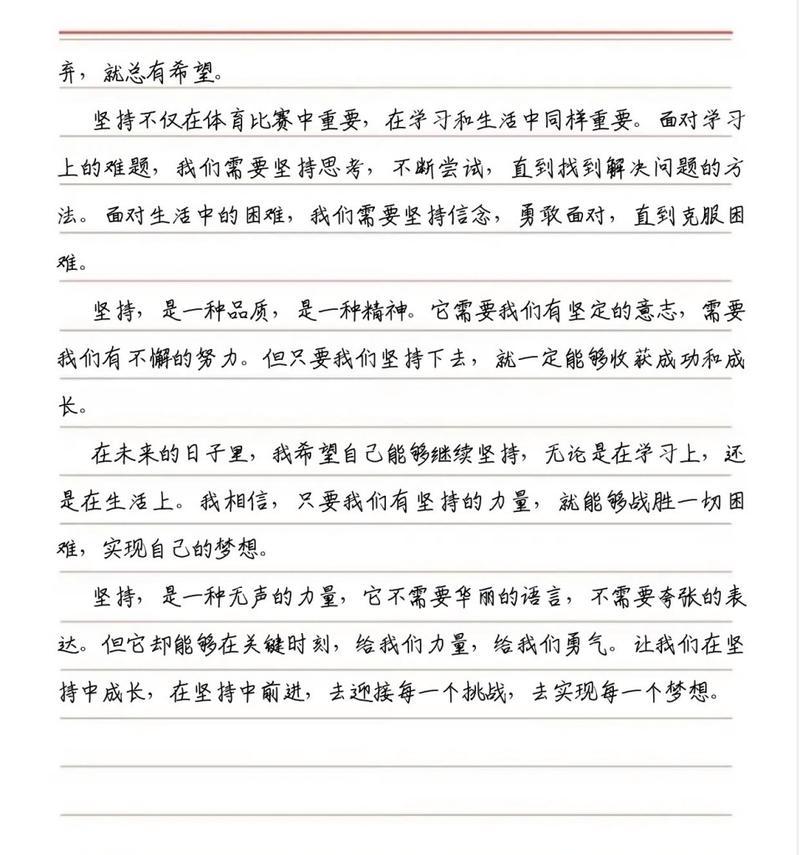 弃，就总有希望。
坚持不仅在体育比赛中重要，在学习和生活中同样重要。面对学习
上的难题，我们需要坚持思考，不断尝试，直到找到解决问题的方
法。面对生活中的困难，我们需要坚持信念，勇敢面对，直到克服困
难。
坚持，是一种品质，是一种精神。它需要我们有坚定的意志，需要
我们有不懈的努力。但只要我们坚持下去，就一定能够收获成功和成
长。
在未来的日子里，我希望自己能够继续坚持，无论是在学习上，还
是在生活上。我相信，只要我们有坚持的力量，就能够战胜一切困
难，实现自己的梦想。
坚持，是一种无声的力量，它不需要华丽的语言，不需要夸张的表
达。但它却能够在关键时刻，给我们力量，给我们勇气。让我们在坚
持中成长，在坚持中前进，去迎接每一个挑战，去实现每一个梦想。